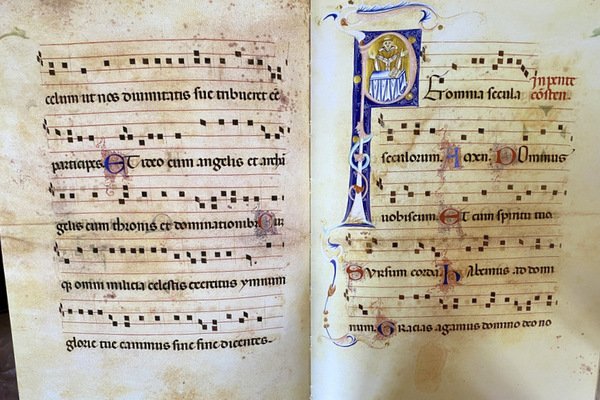 celum ut nos diuinitatis sue tribueret ee
participes. Et ideo cum angelis et archi
gelis cum thronis et dominationib; Cu
q; omni milicia celestis exercitus ymnum
glorie tue canimus sine fine dicentes.
Per omnia secula
In pente
costen.
seculorum. Amen. Dominus
uobiscum. Et cum spiritu tuo
Sursum corda. Habemus ad domi
num. Gracias agamus domino deo no